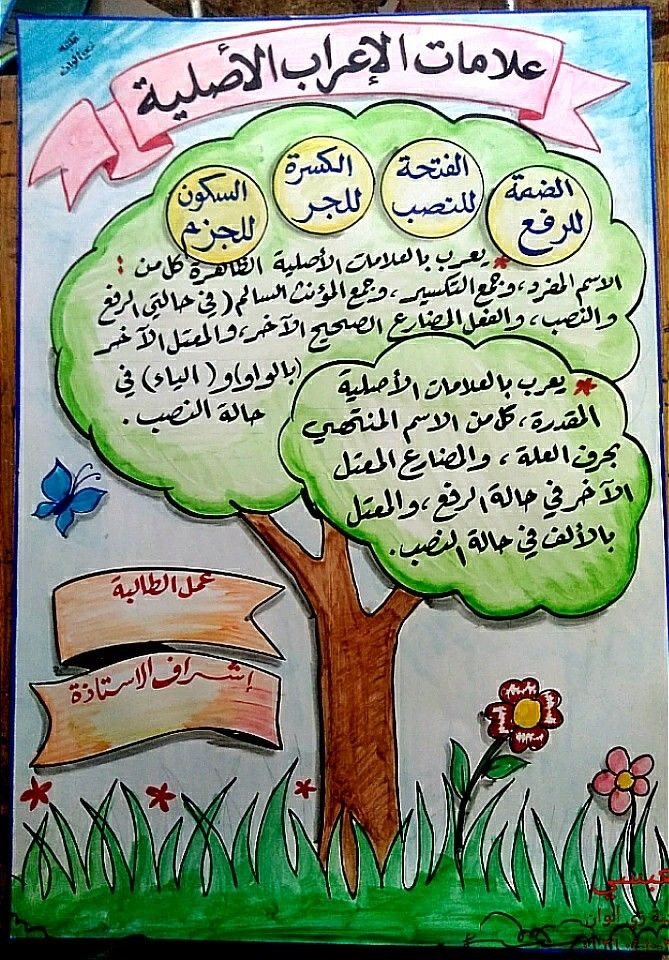 علامات الإعراب الأصلية
الضمة
للرفع
الفتحة
للنصب
الكسرة
للجر
السكون
للجزم
* يعرب بالعلامات الأصلية الظاهرة كل من :
الاسم المفرد ، وجمع التكسير ، وجمع المؤنث السالم ( في حالتي الرفع
والنصب ، والفعل المضارع الصحيح الآخر ، والمعتل الآخر
(بالواو) و ( الياء ) في
حالة النصب .
* يعرب بالعلامات الأصلية
المقدرة ، كل من الاسم المنتهي
بحرف العلة ، والمضارع المعتل
الآخر في حالة الرفع ، والمعتل
بالألف في حالة النصب .
عمل الطالبة
إشراف الاستاذة